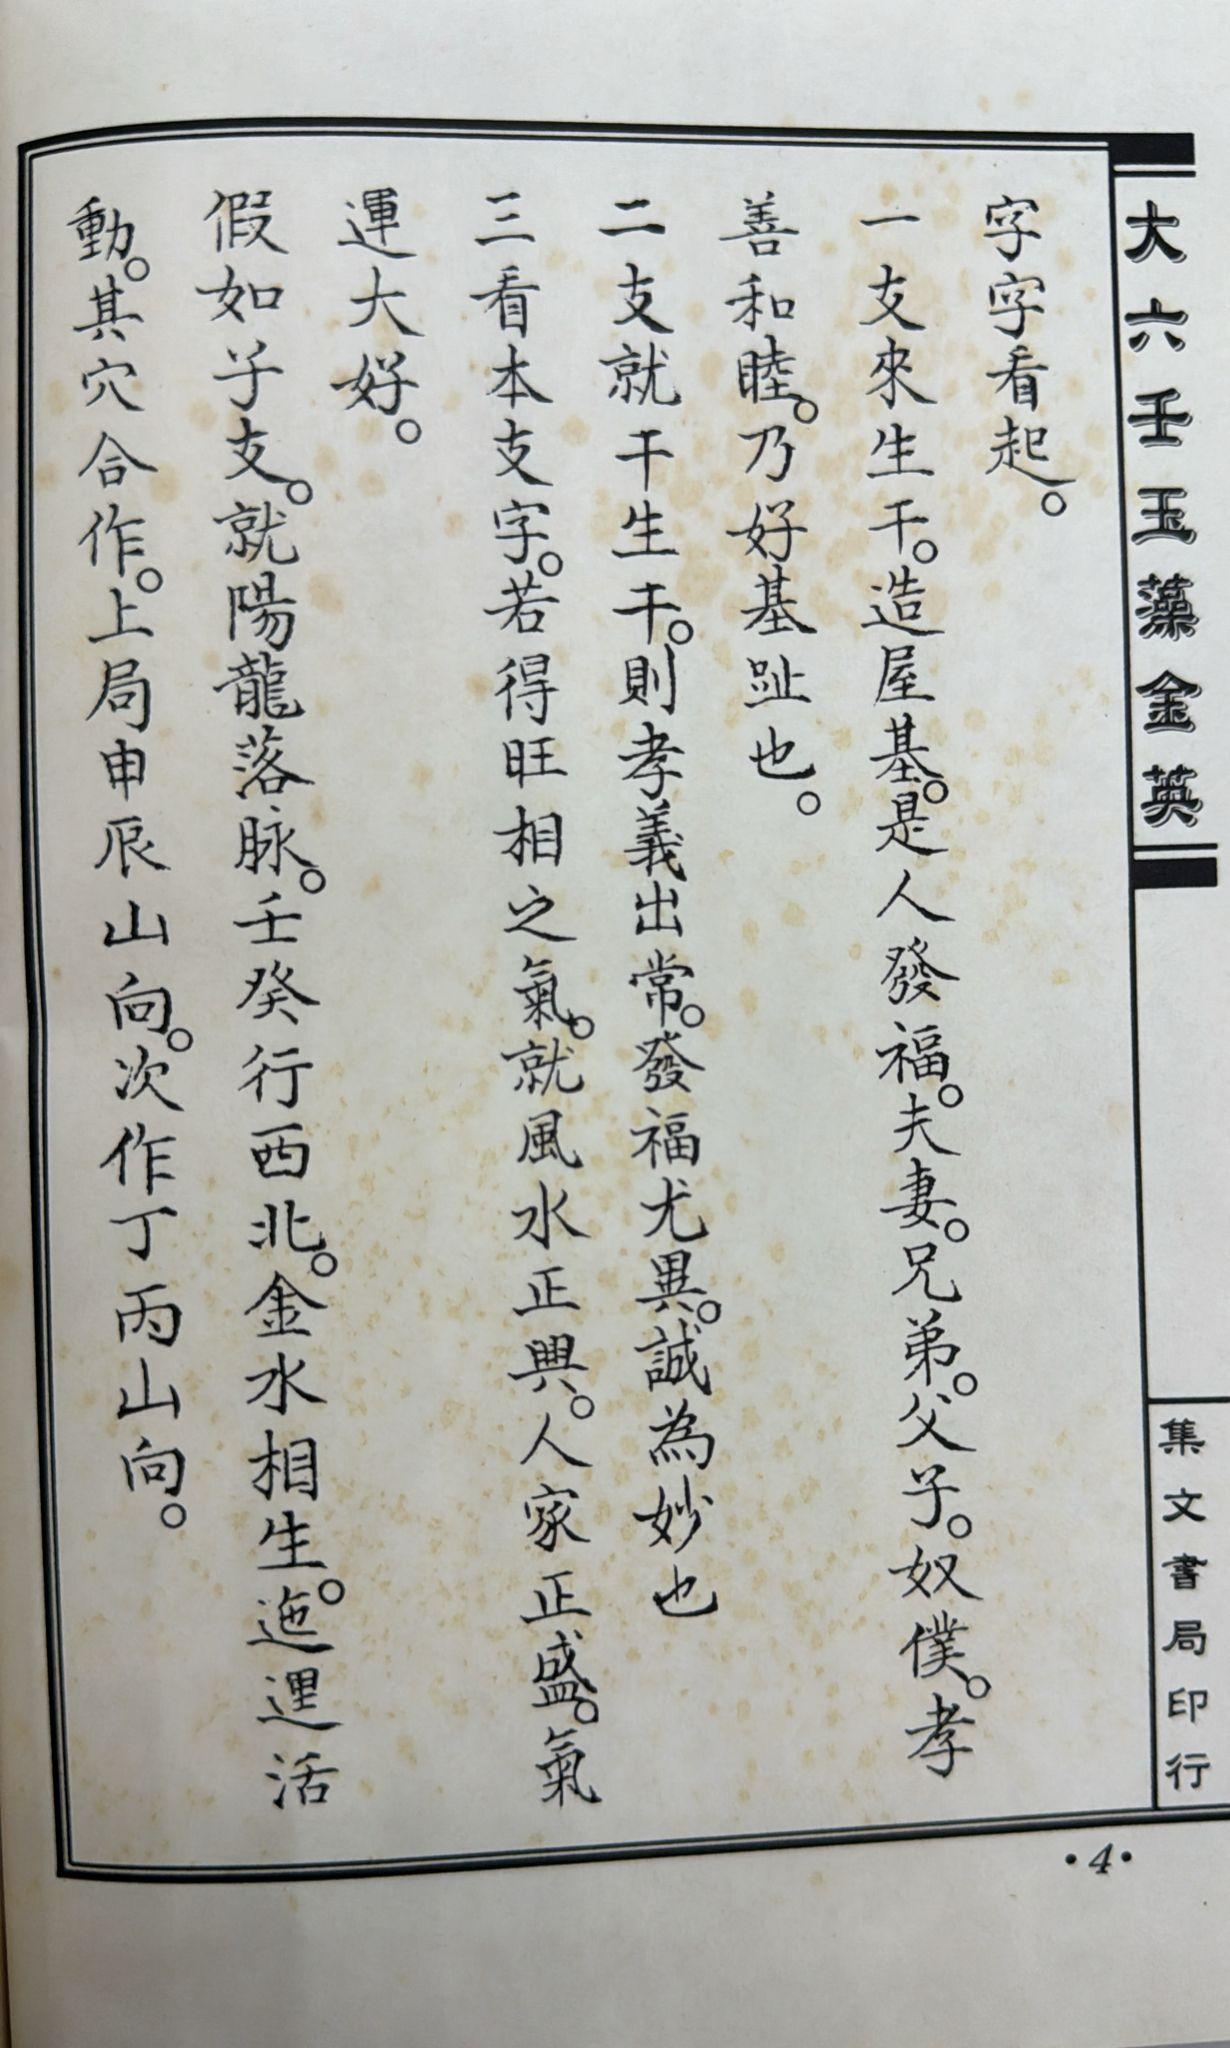 大六壬玉藻金英
集文書局印行
字字看起。
一支來生干。造屋基。是人發福。夫妻。兄弟。父子。奴僕。孝
善和睦。乃好基趾也。
二支就干生干。則孝義出常。發福尤異。誠為妙也
三看本支字。若得旺相之氣。就風水正興。人家正盛。氣
運大好。
假如子支。就陽龍落脉。壬癸行西北。金水相生。迤逕活
動。其穴合作。上局申辰山向。次作丁丙山向。
•4•